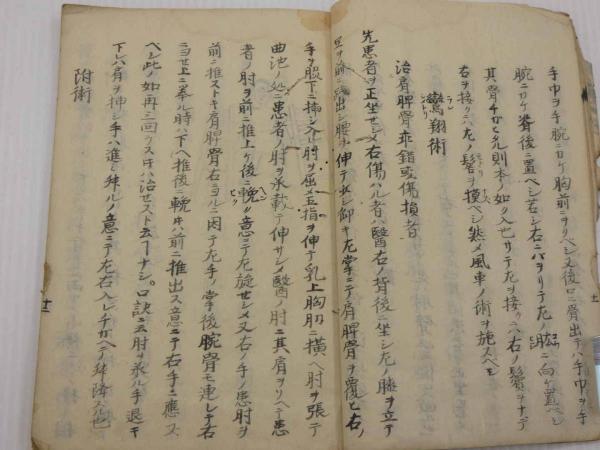 手巾ヲ手ノ腕ニカケ胸前ニヲリベシ又後ロニ骨出テハ手巾ヲ手
腕ニカケ脊後ニ置ベシ若シ右ニハヲリテ左ノ肱ニ向ケ置ベシ
其骨チガヒ凢則本ノ如ク入也サテ左ヲ接クニハ右ノ鬢ヲナデ
右ヲ接クニハ左ノ鬢ヲ摸ベシ然メ風車ノ術ヲ施スベシ
鸞翔術
治肩脾骨乖錯或傷損者
先患者ヲ正坐セシメ右傷ハル者ハ醫右ノ背後ニ坐シ左ノ膝ヲ立テ
足ヲ前ニ出シ腰ヲ伸テ少シ仰キ左掌ニテ肩脾骨ヲ覆ヒ右ノ
手ヲ腋下ニ挿シ入レ肘ヲ屈メ五指ヲ伸テ乳上胸肋ニ横ヘ肘ヲ張テ
曲池ノ処ニ患者ノ肘ヲ承載テ伸サシメ醫ノ肘ニ其肩ヲリヘテ患
者ノ肘ヲ前ニ推上ケ後ニ輓ク意ニテ左旋セシメ又右ノ手ノ患肘ヲ
前ニ推ストキ肩脾骨右ニヨルニ因テ左手ノ掌後腕骨モ連レテ右
ニヨセ上ニ拳ル時ハ下ヘ推後ニ輓キハ前ニ推出ス意ニテ右手ニ應ス
ベシ此ノ如再三回ケスキハ治セスト云フナシ口訣ニ云肘ヲ承ル手退キ
下レハ肩ヲ挿シ手ハ進ミ舛ルノ意ニテ左右入レチガヘノ舛降スル也
附術